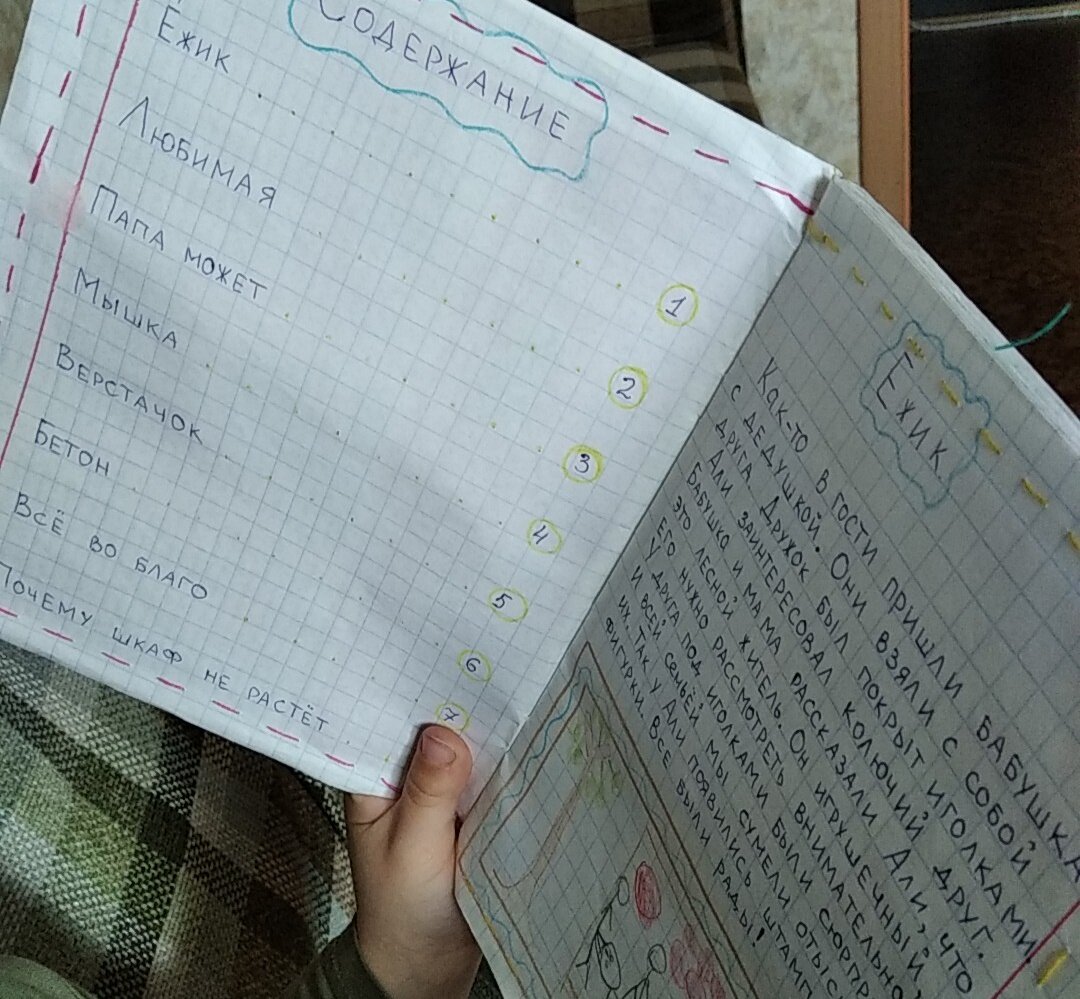 Содержание
Ежик 1
Любимая 2
Папа может 3
Мышка 4
Верстачок 5
Бетон 6
Всё во благо 7
Почему шкаф не растёт
Ёжик
Как-то в гости пришли бабушка
с дедушкой. Они взяли с собой
друга. Дружок был покрыт иголками
Али заинтересовал колючий друг.
Бабушка и мама рассказали Али, что
это лесной житель. Он игрушечный
Его нужно рассмотреть внимательно
У друга под иголками были
и всей семьёй мы сумели
их. Так у Али появились
фигурки. Все были рады!